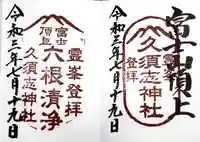 霊峯登拝
富士
頂上
六根清浄
久須志神社
令和三年七月十九日
富士山頂上
霊峯
登拝
久須志神社
令和三年七月十九日